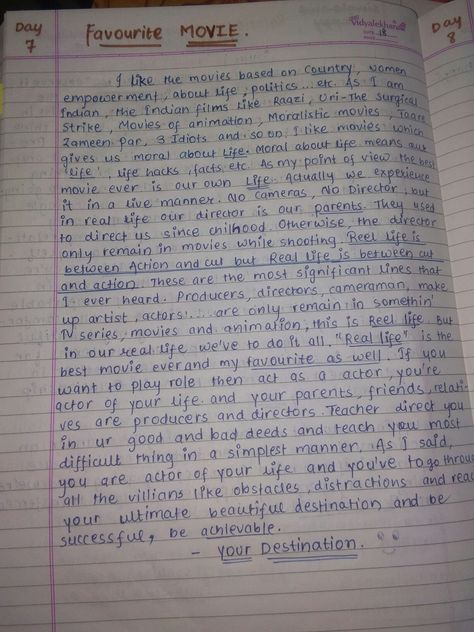 Day 7
Favourite MOVIE.
Vidyalekhan
DATE 18
Day 8
I like the movies based on country, women
empowerment, about life, politics... etc. As I am
Indian, the Indian films like Raazi, Uri-The Surgical
Strike, Movies of animation, Moralistic movies, Taare
Zameen Par, 3 Idiots and so on. I like movies which
gives us moral about life. Moral about life means our
'life', life hacks, facts, etc. As my point of view the best
movie ever is our own life. Actually we experience
it in a live manner. No cameras, No Director, but
in real life our director is our parents. They used
to direct us since chilhood. Otherwise, the director
only remain in movies while shooting. Reel life is
between Action and cut but Real life is between cut
and action. These are the most significant lines that
I ever heard. Producers, directors, cameraman, make
up artist, actors'.... are only remain in somethin'
TV series, movies and animation, this is Reel life. But
in our real life we've to do it all. "Real life" is the
best movie ever and my favourite as well. If you
want to play role then act as a actor, you're
actor of your life. and your parents, friends, relati-
ves are producers and directors. Teacher direct you
in ur good and bad deeds and teach you most
difficult thing in a simplest manner. As I said,
you are actor of your life and you've to go through
all the villians like obstacles, distractions and reac
your ultimate beautiful destination and be
successful, be achievable.
- Your Destination.